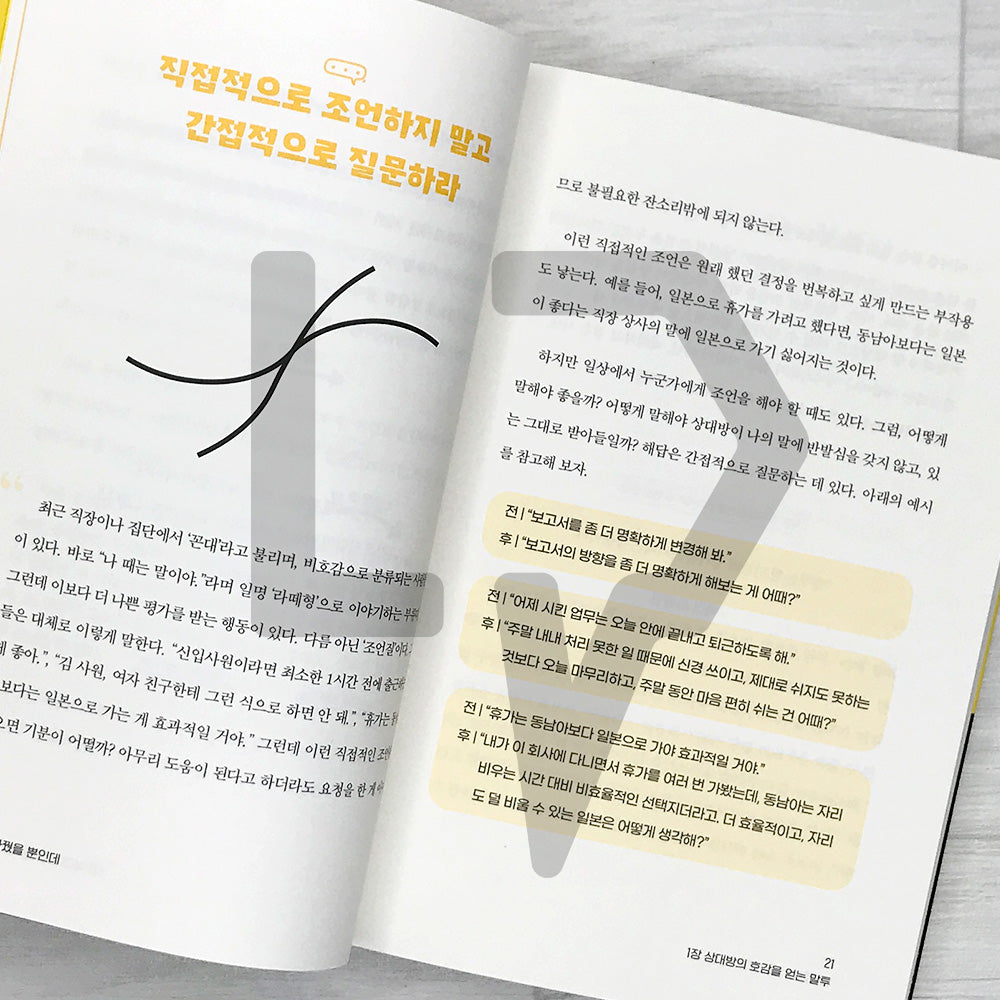 직접적으로 조언하지 말고
간접적으로 질문하라
최근 직장이나 집단에서 '꼰대'라고 불리며, 비호감으로 분류되는
이 있다. 바로 "나 때는 말이야."라며 일명 '라떼형'으로 이야기하는
그런데 이보다 더 나쁜 평가를 받는 행동이 있다. 다름 아닌 '조언질'이다.
들은 대체로 이렇게 말한다. "신입사원이라면 최소한 1시간 전에
좋아.", "김 사원, 여자 친구한테 그런 식으로 하면 안 돼.", "휴가는
보다는 일본으로 가는 게 효과적일 거야." 그런데 이런 직접적인
기분이 어떨까? 아무리 도움이 된다고 하더라도 요청을 한 게
뿐인데
므로 불필요한 잔소리밖에 되지 않는다.
이런 직접적인 조언은 원래 했던 결정을 번복하고 싶게 만드는 부작용
도 낳는다. 예를 들어, 일본으로 휴가를 가려고 했다면, 동남아보다는 일본
이 좋다는 직장 상사의 말에 일본으로 가기 싫어지는 것이다.
하지만 일상에서 누군가에게 조언을 해야 할 때도 있다. 그럼, 어떻게
말해야 좋을까? 어떻게 말해야 상대방이 나의 말에 반발심을 갖지 않고, 있
는 그대로 받아들일까? 해답은 간접적으로 질문하는 데 있다. 아래의 예시
를 참고해 보자.
전 | "보고서를 좀 더 명확하게 변경해 봐."
후 | "보고서의 방향을 좀 더 명확하게 해보는 게 어때?"
전 | "어제 시킨 업무는 오늘 안에 끝내고 퇴근하도록 해."
후 | "주말 내내 처리 못한 일 때문에 신경 쓰이고, 제대로 쉬지도 못하는
것보다 오늘 마무리하고, 주말 동안 마음 편히 쉬는 건 어때?"
전 | "휴가는 동남아보다 일본으로 가야 효과적일 거야."
후 | "내가 이 회사에 다니면서 휴가를 여러 번 가봤는데, 동남아는 자리
비우는 시간 대비 비효율적인 선택지더라고. 더 효율적이고, 자리
도 덜 비울 수 있는 일본은 어떻게 생각해?"
21
1장 상대방의 호감을 얻는 말투